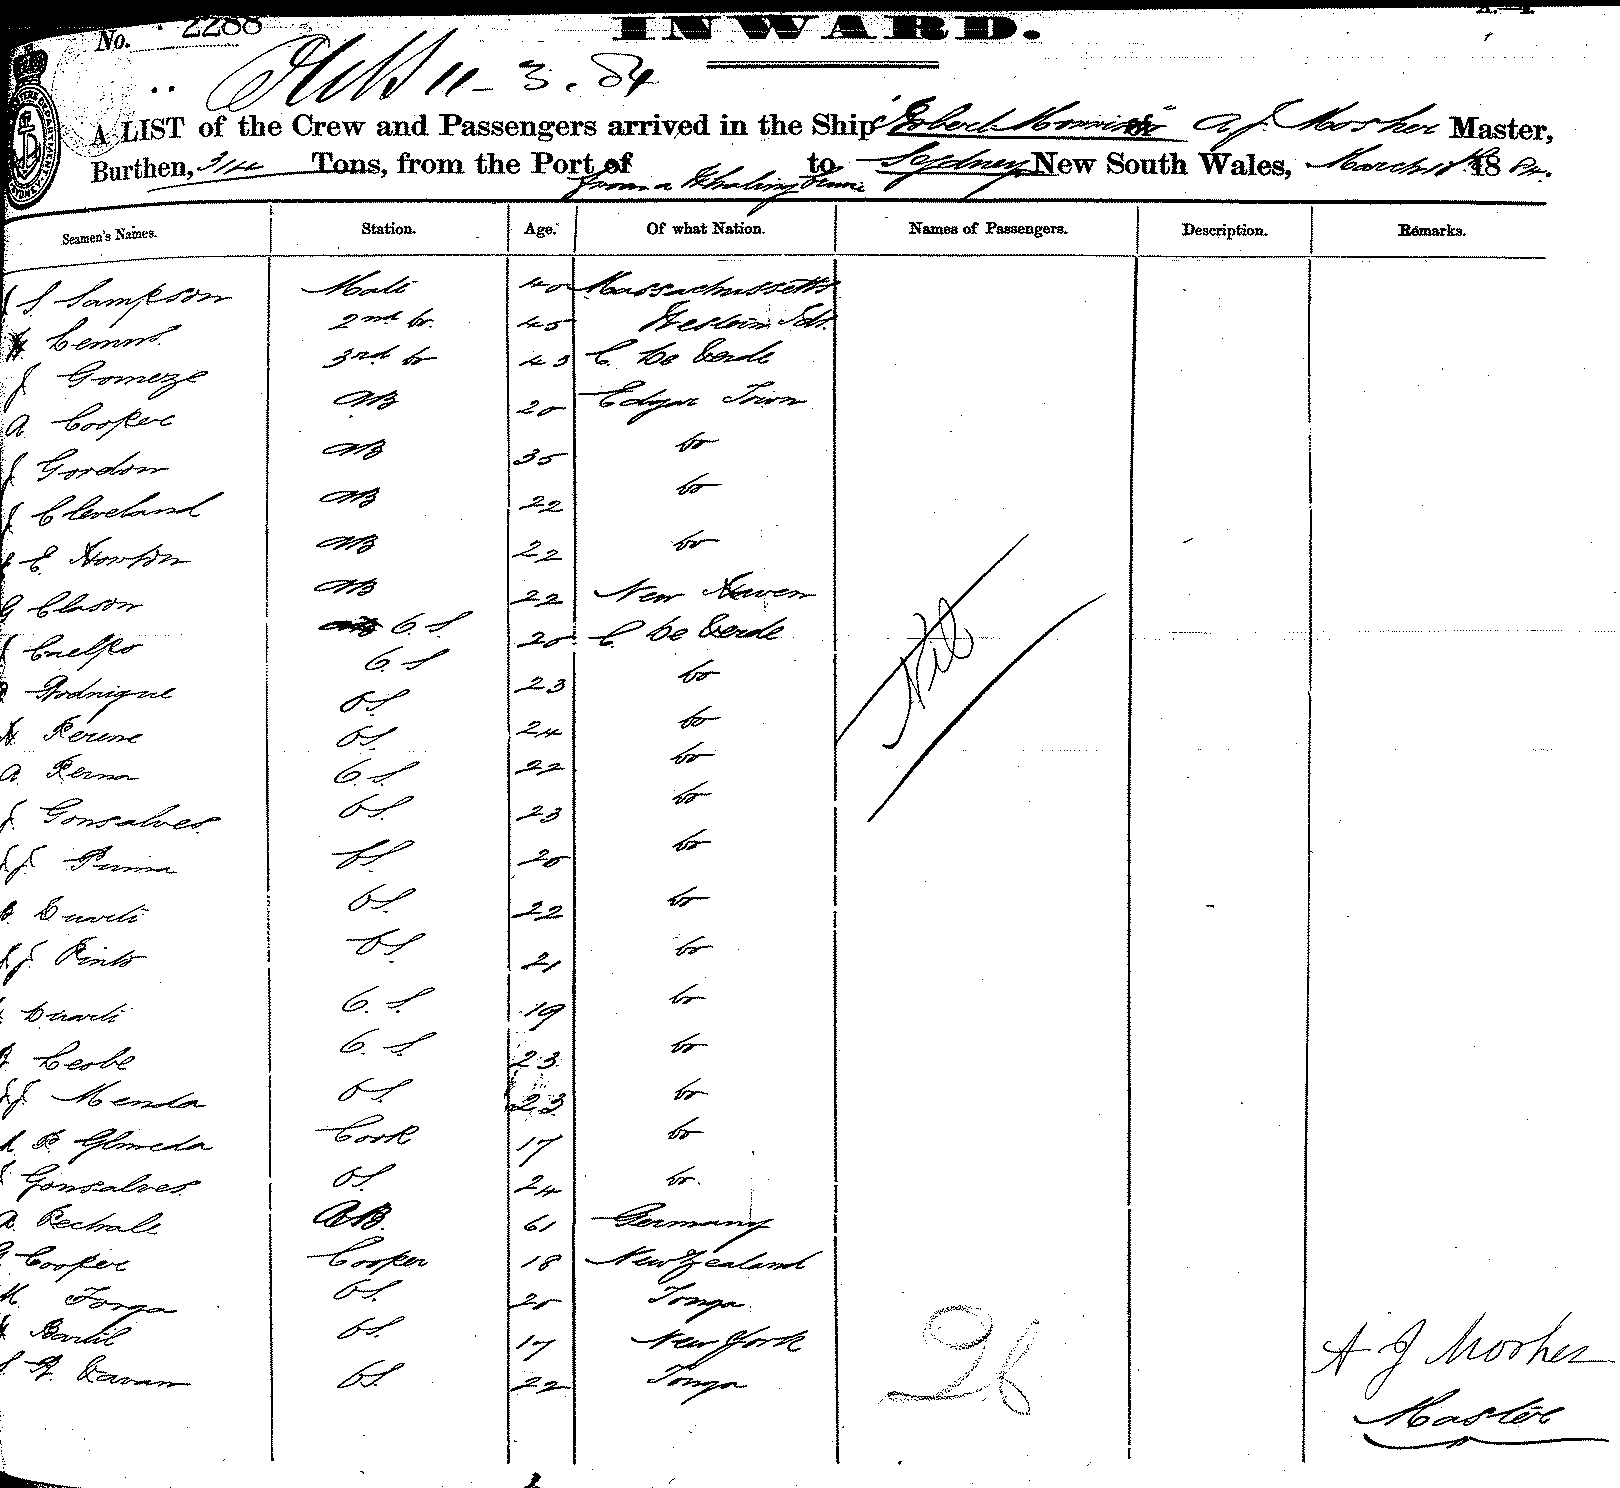 No. 2288
INWARD.
11-3.84
A LIST of the Crew and Passengers arrived in the Ship Robert Morrison A J. Mosher Master,
Burthen, 314 Tons, from the Port of from a Whaling to Sydney New South Wales, March 188
Seamen's Names. Station. Age. Of what Nation. Names of Passengers. Description. Remarks.
S Sampson Mate 40 Massachussetts
2nd Do. 45 Western Ids.
J Gomeze 3rd Do 43 C. De Verde
A Cooper AB 20 Edgar Town
J Gordon AB 35 Do
J Cleveland AB 22 Do
E. Norton AB 22 Do
G Clason AB 22 New Haven
O.S 20 C. De Verde
Rodrigue O.S 23 Do
OS. 24 Do
A. OS. 22 Do
J. Gonsalves O.S. 23 Do
J. OS. 20 Do
OS. 22 Do
J. Pinto OS. 21 Do
O.S. 19 Do
O.S 23. Do
J. Menda OS 23 Do
Cook 17 Do
Gonsalves OS. 24 Do.
A. AB. 61 Germany
Cooper Cooper 18 New Zealand
M. Tonga OS. 20 Tonga
OS. 17 New York
OS. 22 Tonga
Nil
26
A J Mosher
Master